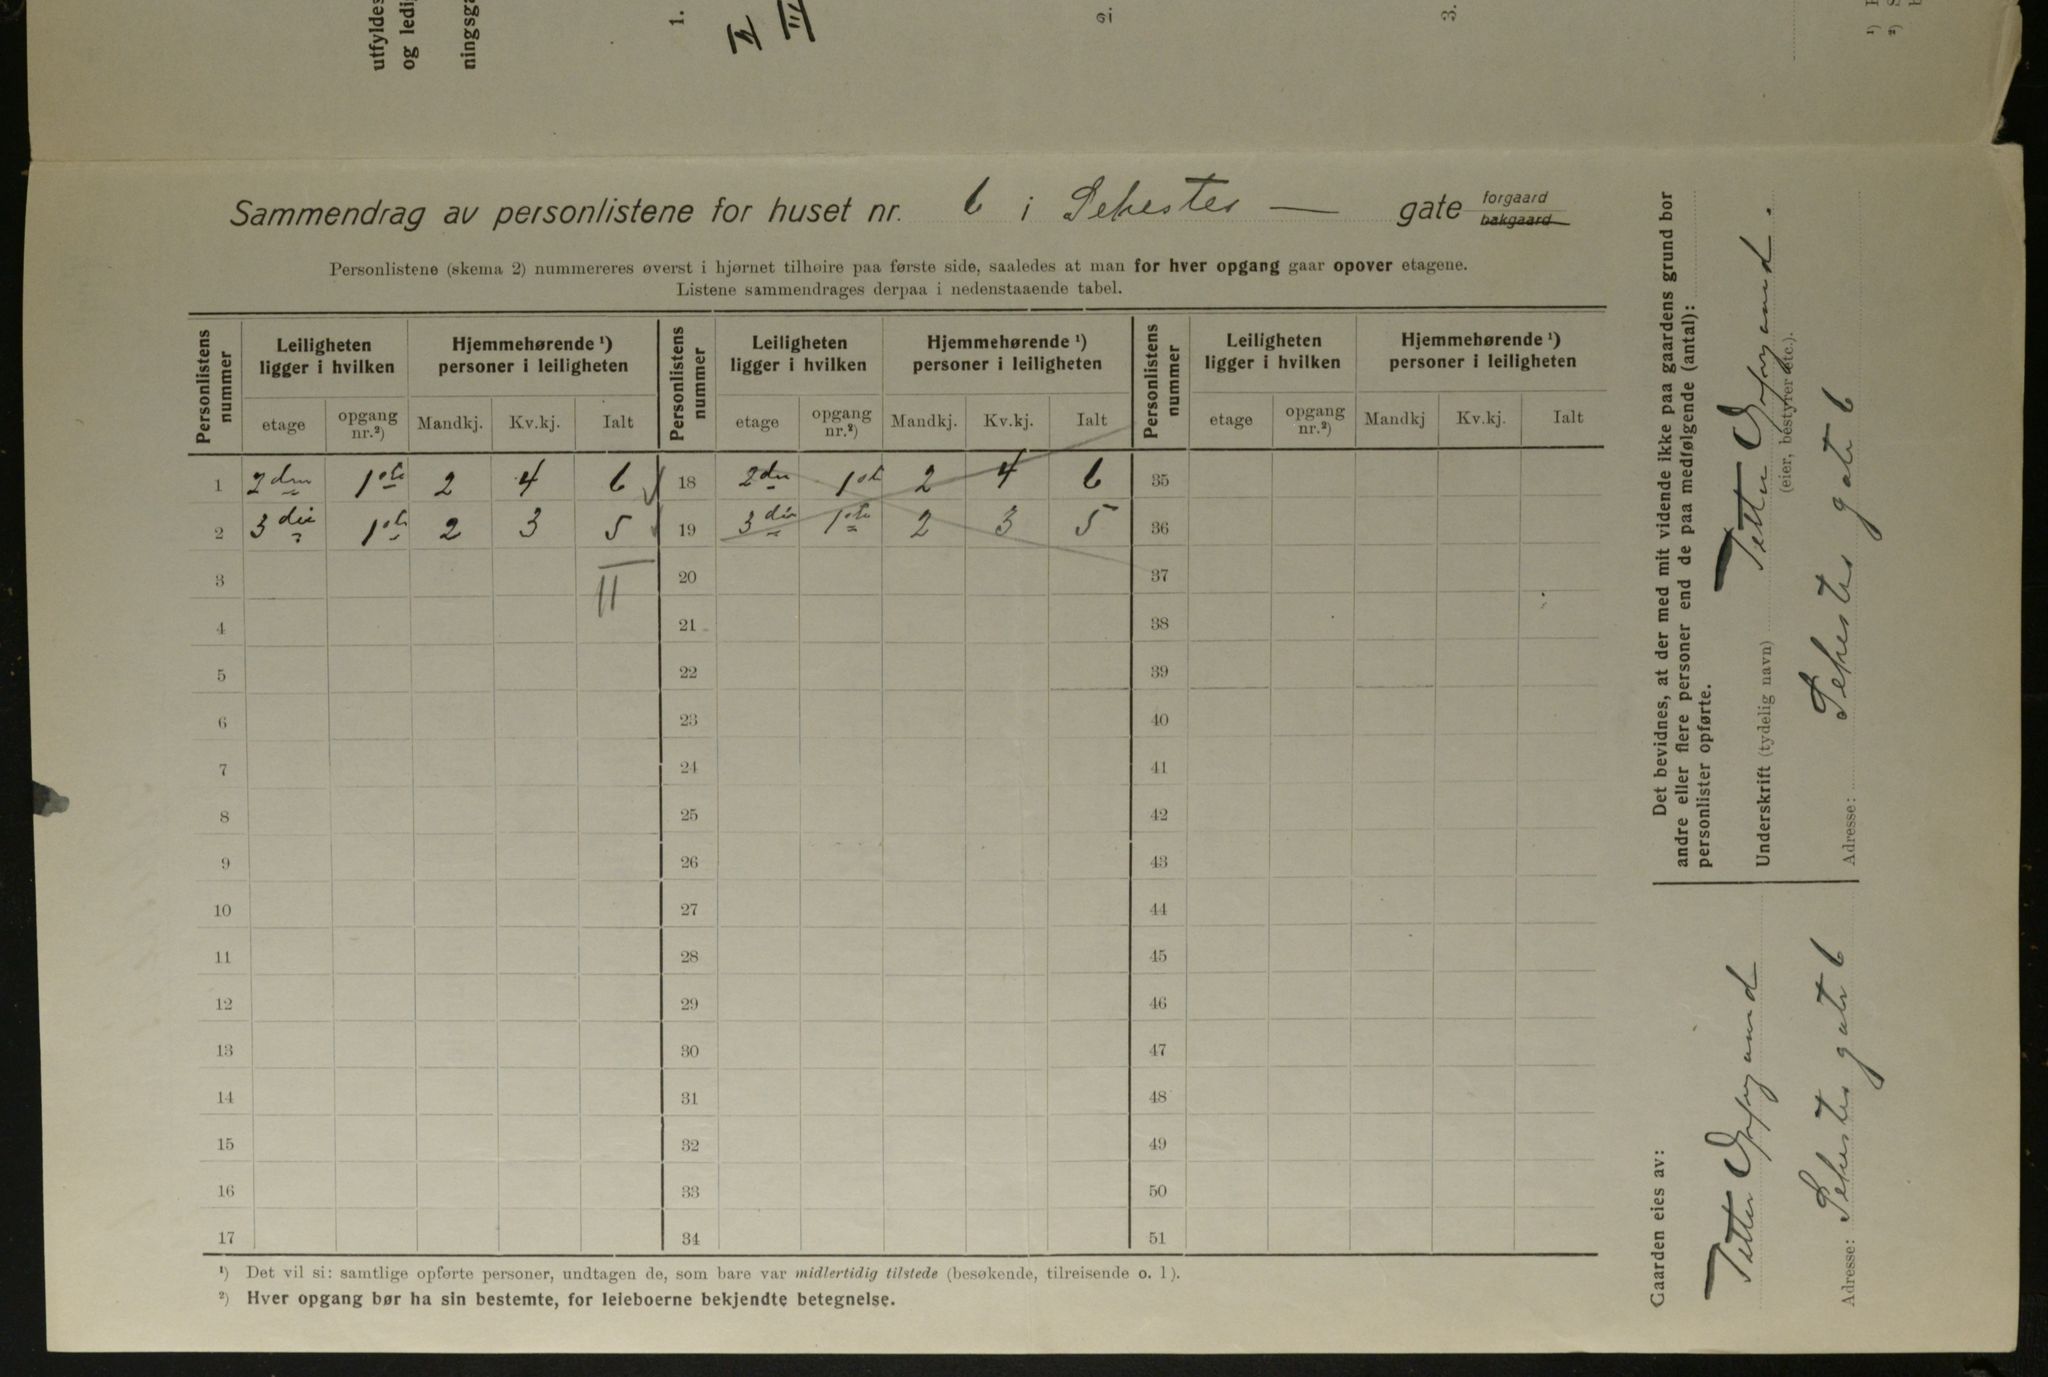 utfyldes
og ledi
ningsga
1.
II
III
3.
Sammendrag av personlistene for huset nr. 6 i Schester — gate forgaard
bakgaard
Personlistene (skema 2) nummereres øverst i hjørnet tilhøire paa første side, saaledes at man for hver opgang gaar opover etagene.
Listene sammendrages derpaa i nedenstaaende tabel.
Personlistens nummer Leiligheten ligger i hvilken Hjemmehørende ¹) personer i leiligheten Personlistens nummer Leiligheten ligger i hvilken Hjemmehørende ¹) personer i leiligheten Personlistens nummer Leiligheten ligger i hvilken Hjemmehørende ¹) personer i leiligheten
etage opgang nr.²) Mandkj. Kv.kj. Ialt etage opgang nr.²) Mandkj. Kv.kj. Ialt etage opgang nr.²) Mandkj Kv.kj. Ialt
1 2den 1ste 2 4 6 18 2den 1ste 2 4 6 35
2 3die 1ste 2 3 5 19 3die 1ste 2 3 5 36
3 11 20 37
4 21 38
5 22 39
6 23 40
7 24 41
8 25 42
9 26 43
10 27 44
11 28 45
12 29 46
13 30 47
14 31 48
15 32 49
16 33 50
17 34 51
¹) Det vil si: samtlige opførte personer, undtagen de, som bare var midlertidig tilstede (besøkende, tilreisende o. l).
²) Hver opgang bør ha sin bestemte, for leieboerne bekjendte betegnelse.
Det bevidnes, at der med mit vidende ikke paa gaardens grund bor
andre eller flere personer end de paa medfølgende (antal):
personlister opførte.
Underskrift (tydelig navn)
(eier, bestyrer etc.).
Adresse: gate 6
Gaarden eies av:
Adresse: gate 6